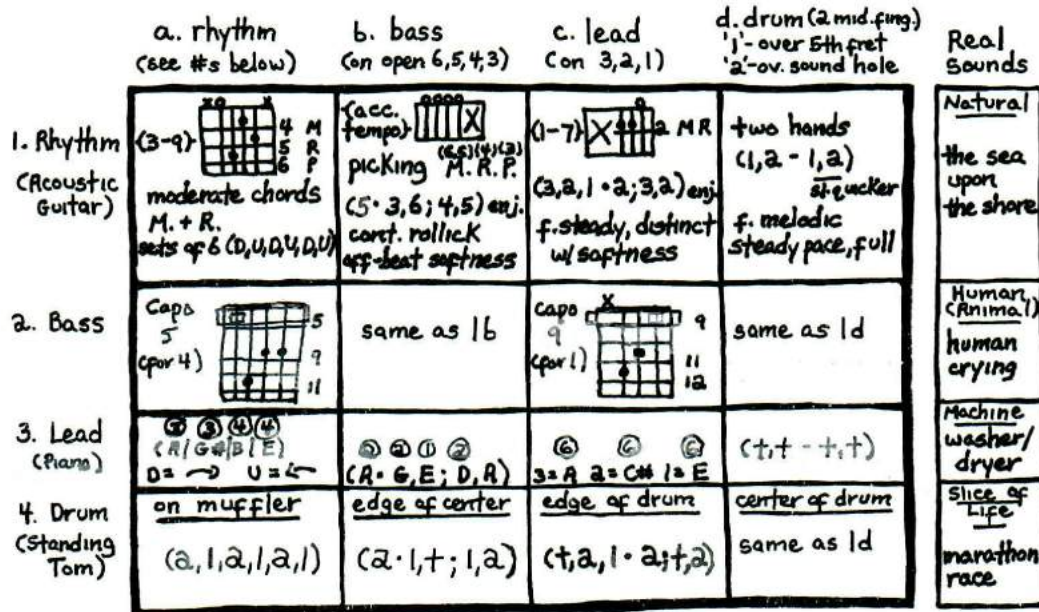 a. rhythm
(see #s below)
b. bass
(on open 6,5,4,3)
c. lead
(on 3,2,1)
d. drum (2 mid. fing.)
'1'- over 5th fret
'2'- ov. sound hole
Real
Sounds
1. Rhythm
(Acoustic
Guitar)
{3-9}
x o x
4 M
5 R
6 P
moderate chords
M. + R.
sets of 6 (D,U,D,U,D,U)
{acc.
tempo}
oooo
X
picking
(6,5)(4)(3)
M. R. P.
(5 · 3,6; 4,5) enj.
cont. rollick
off-beat softness
{1-7}
o
X
2 M R
(3,2,1 · 2; 3,2) enj.
f. steady, distinct
w/ softness
two hands
(1,2 - 1,2)
quicker
f. melodic
steady pace, full
Natural
the sea
upon
the shore
2. Bass
Capo
5
(for 4)
5
9
11
same as 1b
Capo
9
(for 1)
x
9
11
12
same as 1d
Human,
(Animal)
human
crying
3. Lead
(Piano)
③ ④ ④
(A/G#/B/E)
D= → U= ←
② ① ②
(A · G, E; D, A)
⑥ ⑥ ⑥
3=A 2=C# 1=E
(+,+ - +,+)
Machine
washer/
dryer
4. Drum
(Standing
Tom)
on muffler
(2,1,2,1,2,1)
edge of center
(2 · 1,+; 1,2)
edge of drum
(+,2,1 · 2; +,2)
center of drum
same as 1d
Slice of
Life
marathon
race